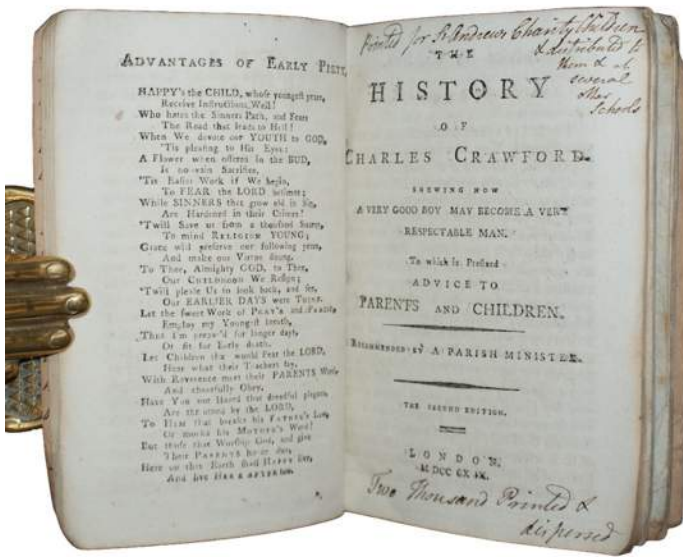 ADVANTAGES OF EARLY PIETY.
HAPPY's the CHILD, whose youngest years,
Receive Instructions Well!
Who hates the Sinners Path, and Fears
The Road that leads to Hell!
When We devote our YOUTH to GOD,
'Tis pleasing to His Eyes:
A Flower when offered in the BUD,
Is no vain Sacrifice.
'Tis Easier Work if We begin,
To FEAR the LORD betimes;
While SINNERS that grow old in Sin,
Are Hardened in their Crimes!
'Twill Save us from a thousand Snares,
To mind RELIGION YOUNG;
Grace will preserve our following years,
And make our Virtue strong.
To Thee, Almighty GOD, to Thee,
Our CHILDHOOD We Resign;
'Twill please Us to look back, and see,
Our EARLIER DAYS were THINE.
Let the sweet Work of PRAY'R and PRAISE,
Employ my Youngest breath,
Thus I'm prepar'd for longer days,
Or fit for Early death.
Let Children that would Fear the LORD,
Hear what their Teachers say,
With Reverence meet their PARENTS Word
And chearfully Obey.
Have You not Heard that dreadful plagues
Are the by the LORD,
To HIM that breaks his FATHER's Law,
Or mocks his MOTHER's Word!
But those that Worship God, and give
Their PARENTS honor due,
Here on this Earth shall HAPPY live,
And live HEREAFTER too.
Printed for St Andrews Charity Children
& distributed to
them & at
several
other
Schools
THE
HISTORY
OF
CHARLES CRAWFORD.
SHEWING HOW
A VERY GOOD BOY MAY BECOME A VERY
RESPECTABLE MAN.
To which is Prefixed
ADVICE TO
PARENTS AND CHILDREN.
RECOMMENDED BY A PARISH MINISTER.
THE SECOND EDITION.
LONDON,
Two Thousand Printed &
dispersed